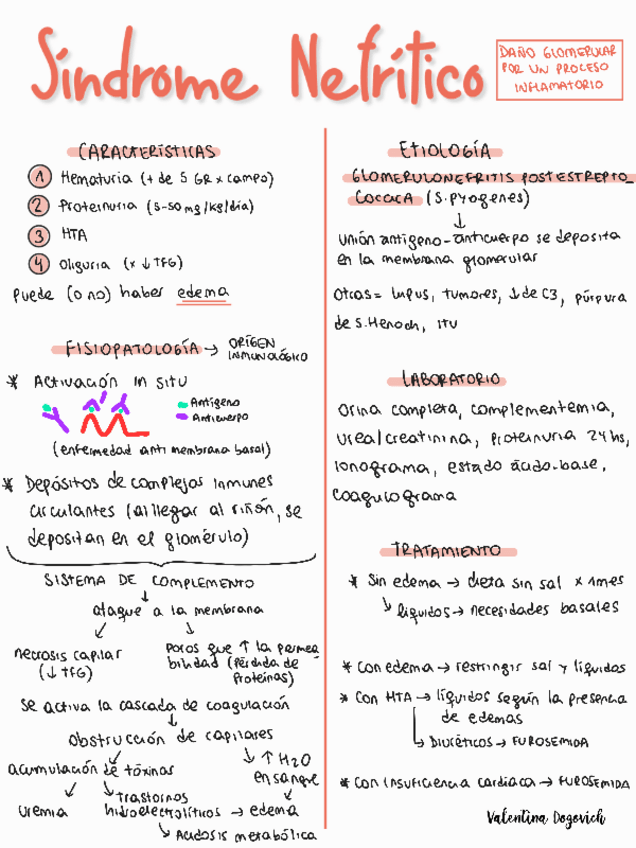 Síndrome Nefrítico
DAÑO GLOMERULAR
POR UN PROCESO
INFLAMATORIO
CARACTERÍSTICAS
1 Hematuria (+ de 5 GR x campo)
2 Proteinuria (5-50 mg/kg/día)
3 HTA
4 Oliguria (x ↓ TFG)
Puede (o no) haber edema
FISIOPATOLOGÍA → ORÍGEN
INMUNOLÓGICO
* Activación in situ
Antígeno
Anticuerpo
(enfermedad anti membrana basal)
* Depósitos de complejos inmunes
circulantes (al llegar al riñón, se
depositan en el glomérulo)
SISTEMA DE COMPLEMENTO
↓
ataque a la membrana
↙ ↘
necrosis capilar
(↓ TFG)
Poros que ↑ la permea
bilidad (Pérdida de
Proteínas)
Se activa la cascada de coagulación
↓
Obstrucción de capilares
acumulación de tóxinas
↓ ↑ H2O
en sangre
uremia
↳ trastornos
hidroelectrolíticos → edema
↘ Acidosis metabólica
ETIOLOGÍA
GLOMERULONEFRITIS POSTESTREPTO_
COCCICA (S. Pyogenes)
↓
Unión antígeno-anticuerpo se deposita
en la membrana glomerular
Otras= lupus, tumores, ↓ de C3, púrpura
de S. Henoch, ITU
LABORATORIO
Orina completa, complementemia,
urea/creatinina, proteinuria 24hs,
ionograma, estado ácido-base,
Coagulograma
TRATAMIENTO
* Sin edema → dieta sin sal x 1mes
↳ líquidos → necesidades basales
* Con edema → restringir sal y líquidos
* Con HTA → líquidos según la presencia
de edemas
↳ DIURÉTICOS → FUROSEMIDA
* Con insuficiencia cardíaca → FUROSEMIDA
Valentina Dogovich